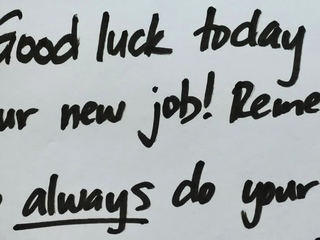 Good luck today
ur new job! Reme
always do your